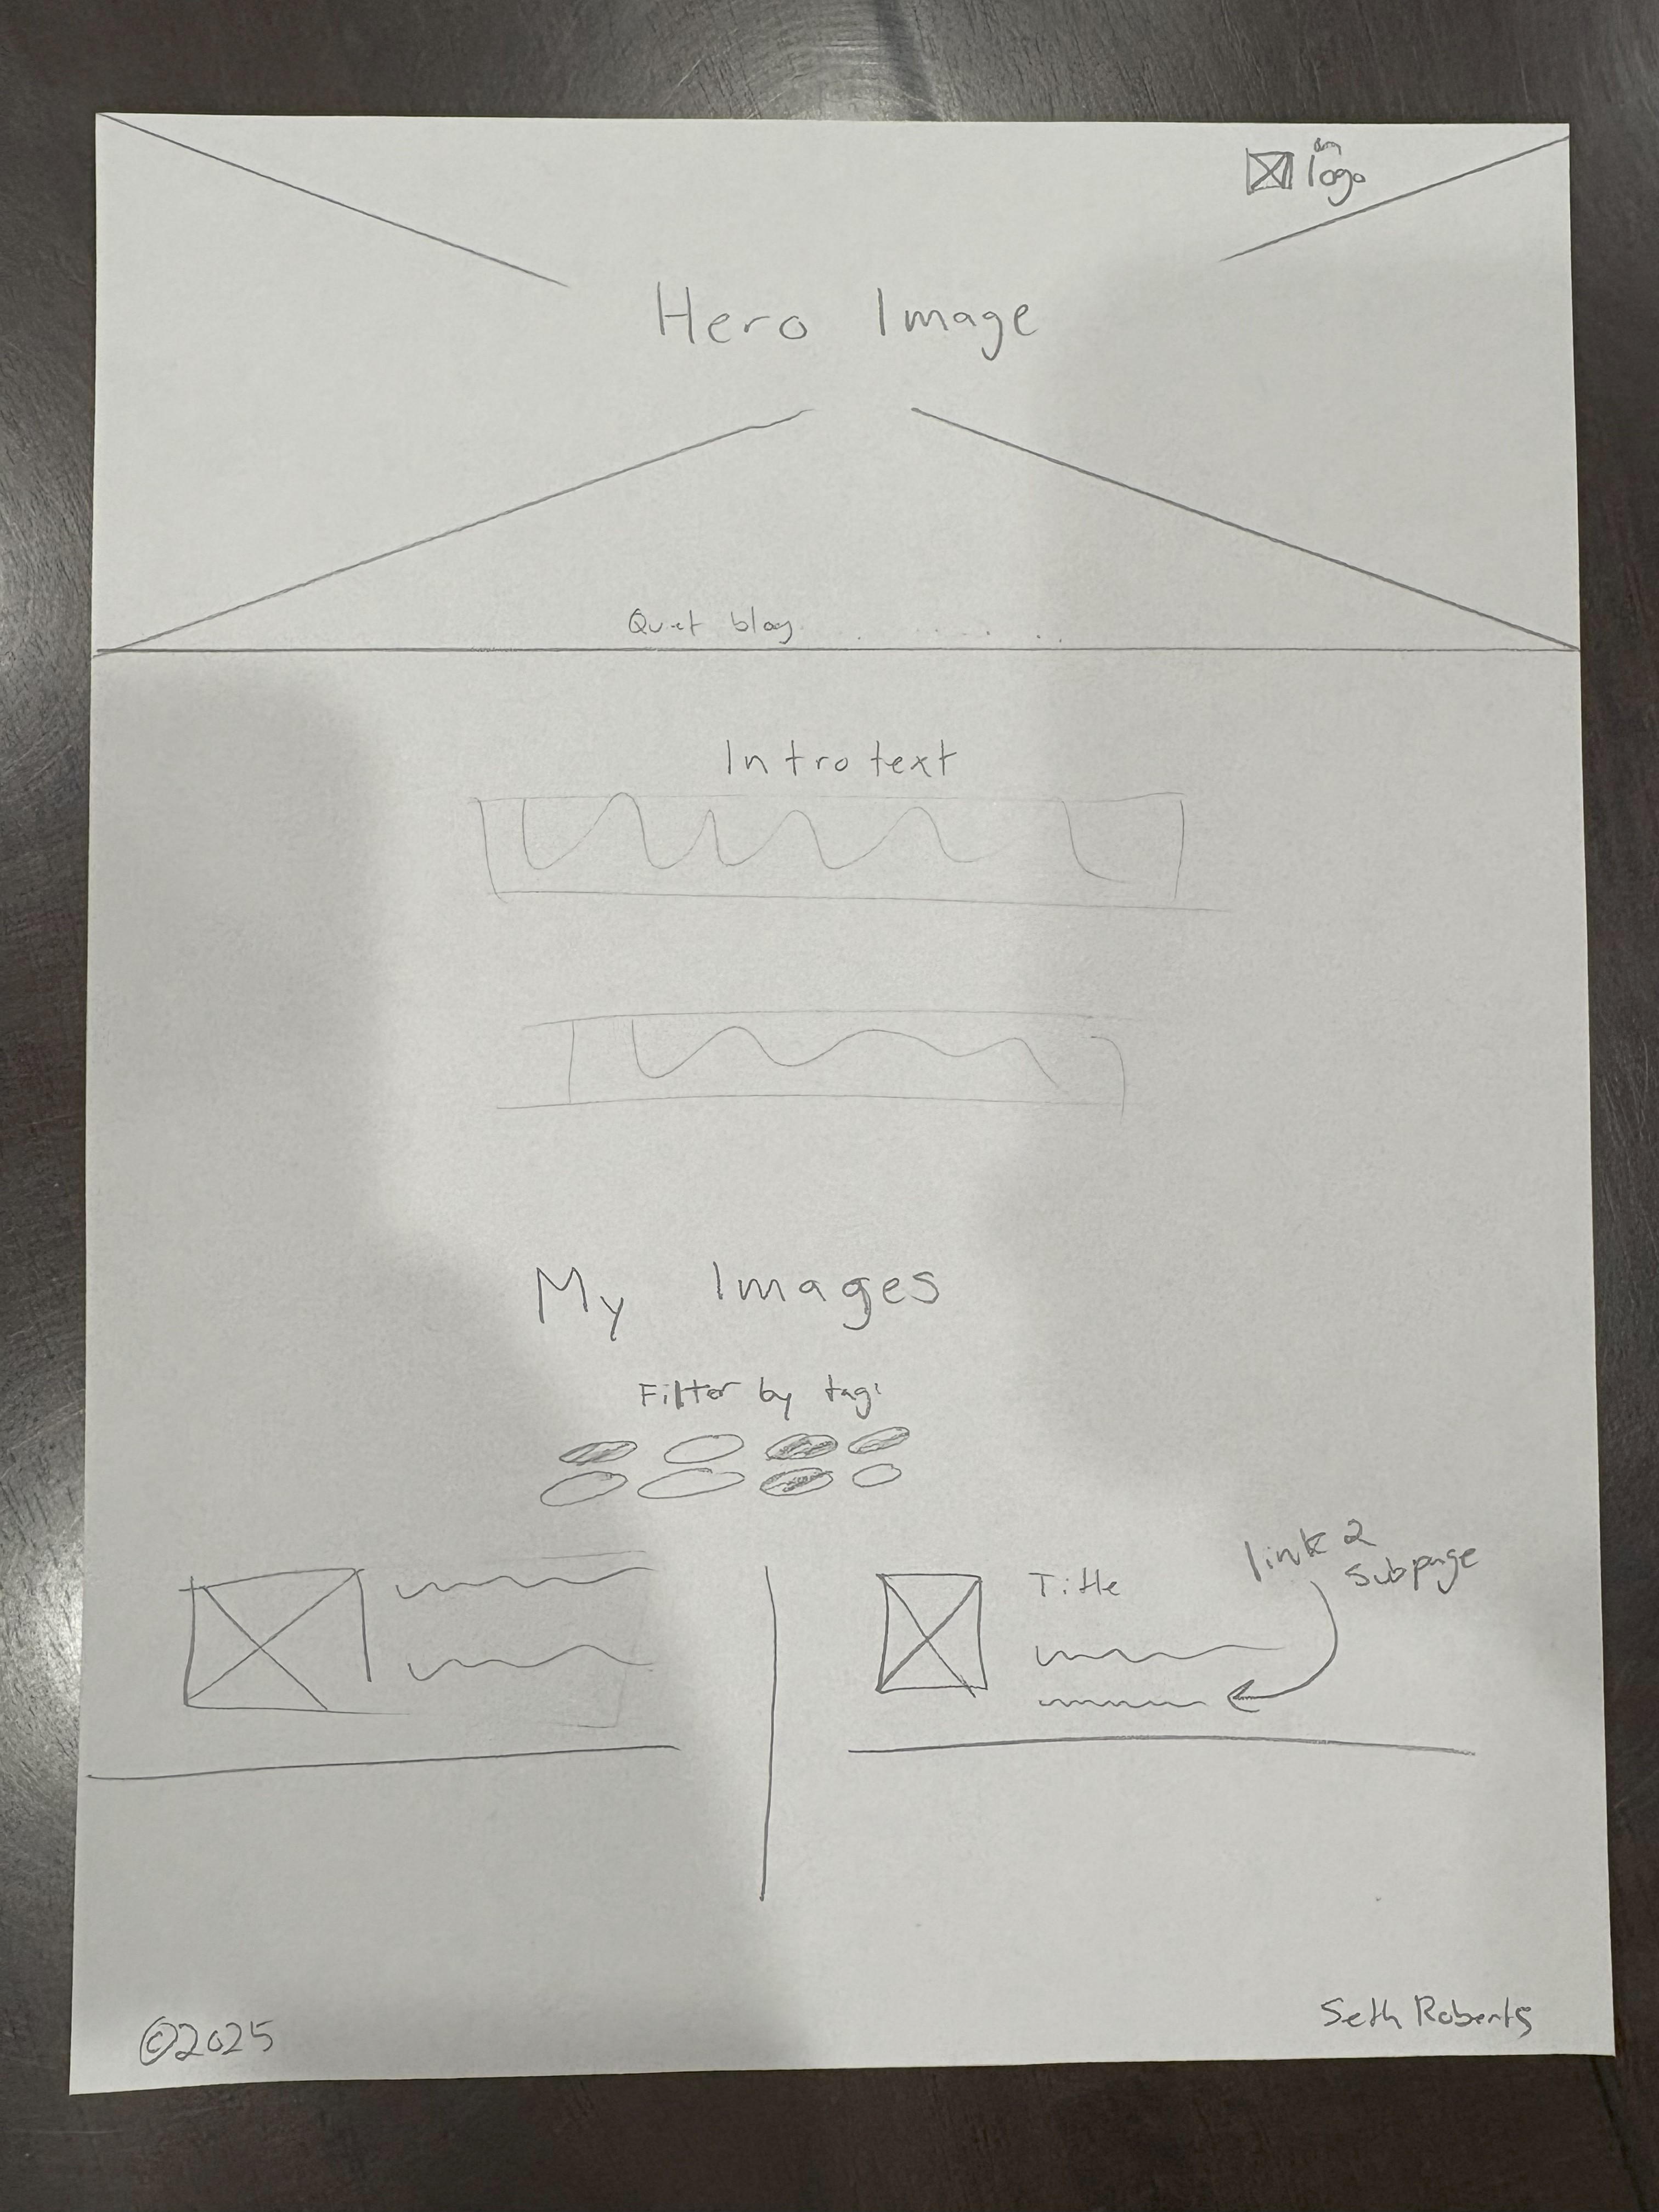 logo
Hero Image
Quiet blog
Intro text
My Images
Filter by tag:
link 2
subpage
Title
©2025
Seth Roberts